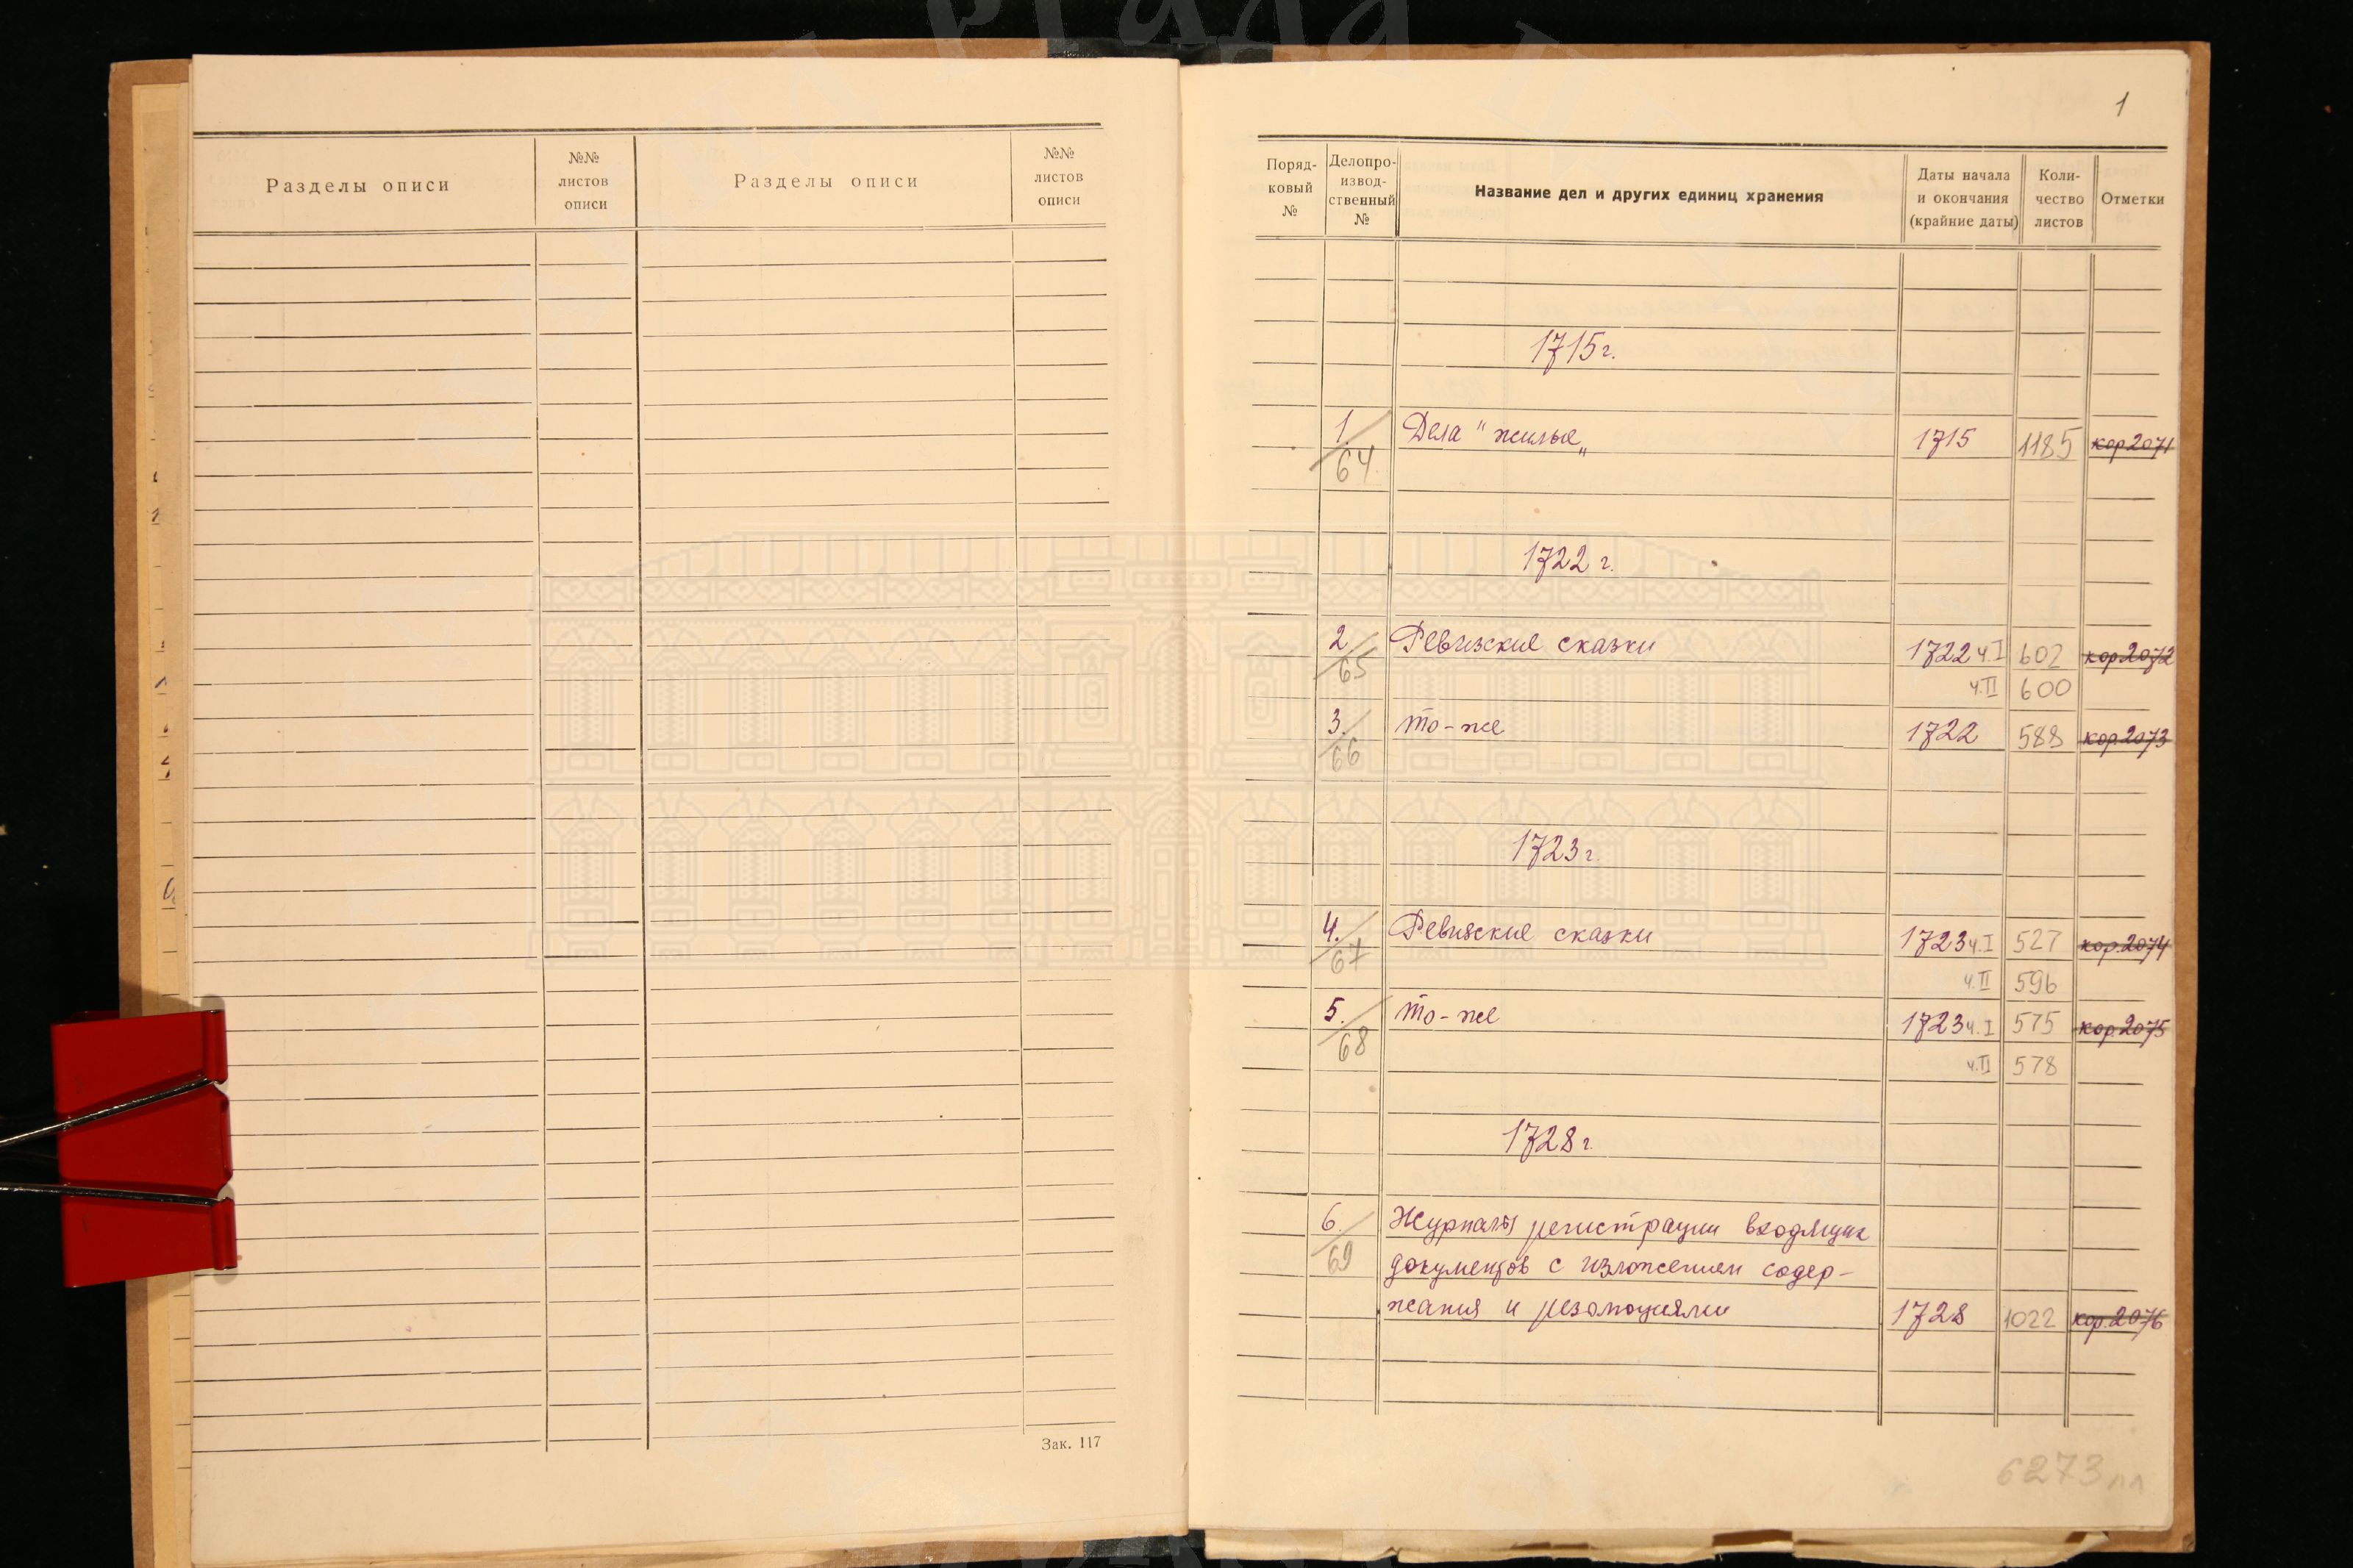 Разделы описи
№№
листов
описи
Разделы описи
№№
листов
описи
Зак. 117
1
Поряд-
ковый
№
Делопро-
извод-
ственный
№
Название дел и других единиц хранения
Даты начала
и окончания
(крайние даты)
Коли-
чество
листов
Отметки
1715 г.
1./64. Дела "жилые„ 1715 1185 кор 2071
1722 г.
2/65 Ревизские сказки 1722 ч. I 602 кор 2072
ч. II 600
3./66 То-же 1722 588 кор. 2073
1723 г.
4./67 Ревизские сказки 1723 ч. I 527 кор. 2074
ч. II 596
5./68 То-же 1723 ч. I 575 кор. 2075
ч. II 578
1728 г.
6./69 Журналы регистрации входящих
документов с изложением содер-
жания и резолюциями 1728 1022 кор. 2076
6273 лл